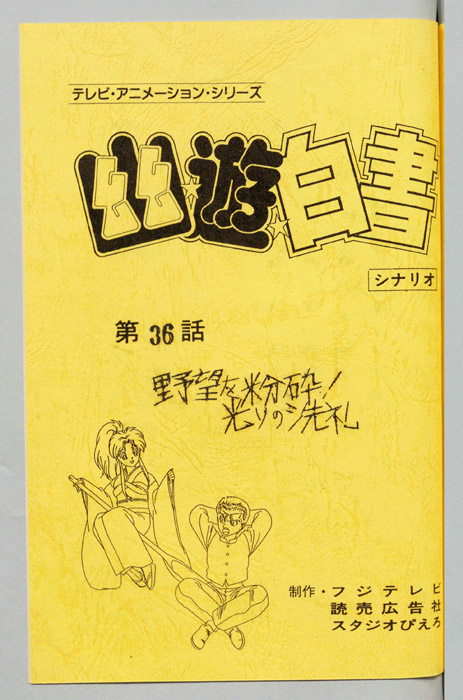 テレビ・アニメーション・シリーズ
幽☆遊☆白書
シナリオ
第36話
野望を粉砕!
光りの洗礼
制作・フジテレビ
読売広告社
スタジオぴえろ